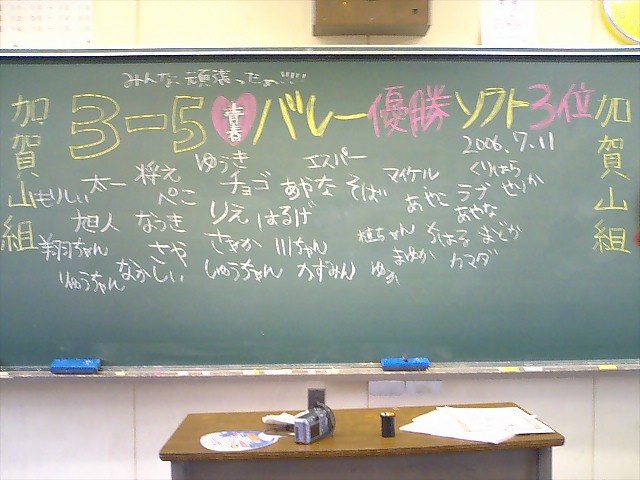 みんな頑張ったぁ
加賀山組
3-5 青春 バレー優勝 ソフト3位
加賀山組
2006.7.11
ゆうき エスパー マイケル くりはら
太一 将え チョゴ あやな そば ラブ せりか
もりしい ぺこ あやこ あやな
旭人 なつき りえ はるげ
翔ちゃん さや さやか 川ちゃん 植ちゃん ちはる まどか
りゅうちゃん なかしぃ しゅうちゃん かずみん ゆか まゆか カマダ